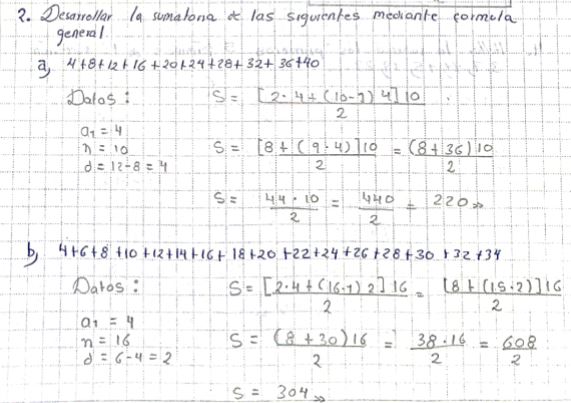 2. Desarrollar la sumatoria de las siguientes mediante formula
general
a) 4+8+12+16+20+24+28+32+36+40
Datos:
a1 = 4
n = 10
d = 12-8 = 4
S = [2·4+(10-1)4]10 / 2
S = [8+(9·4)]10 / 2 = (8+36)10 / 2
S = 44·10 / 2 = 440 / 2 = 220
b) 4+6+8+10+12+14+16+18+20+22+24+26+28+30+32+34
Datos:
a1 = 4
n = 16
d = 6-4 = 2
S = [2·4+(16-1)2]16 / 2 = [8+(15·2)]16 / 2
S = (8+30)16 / 2 = 38·16 / 2 = 608 / 2
S = 304